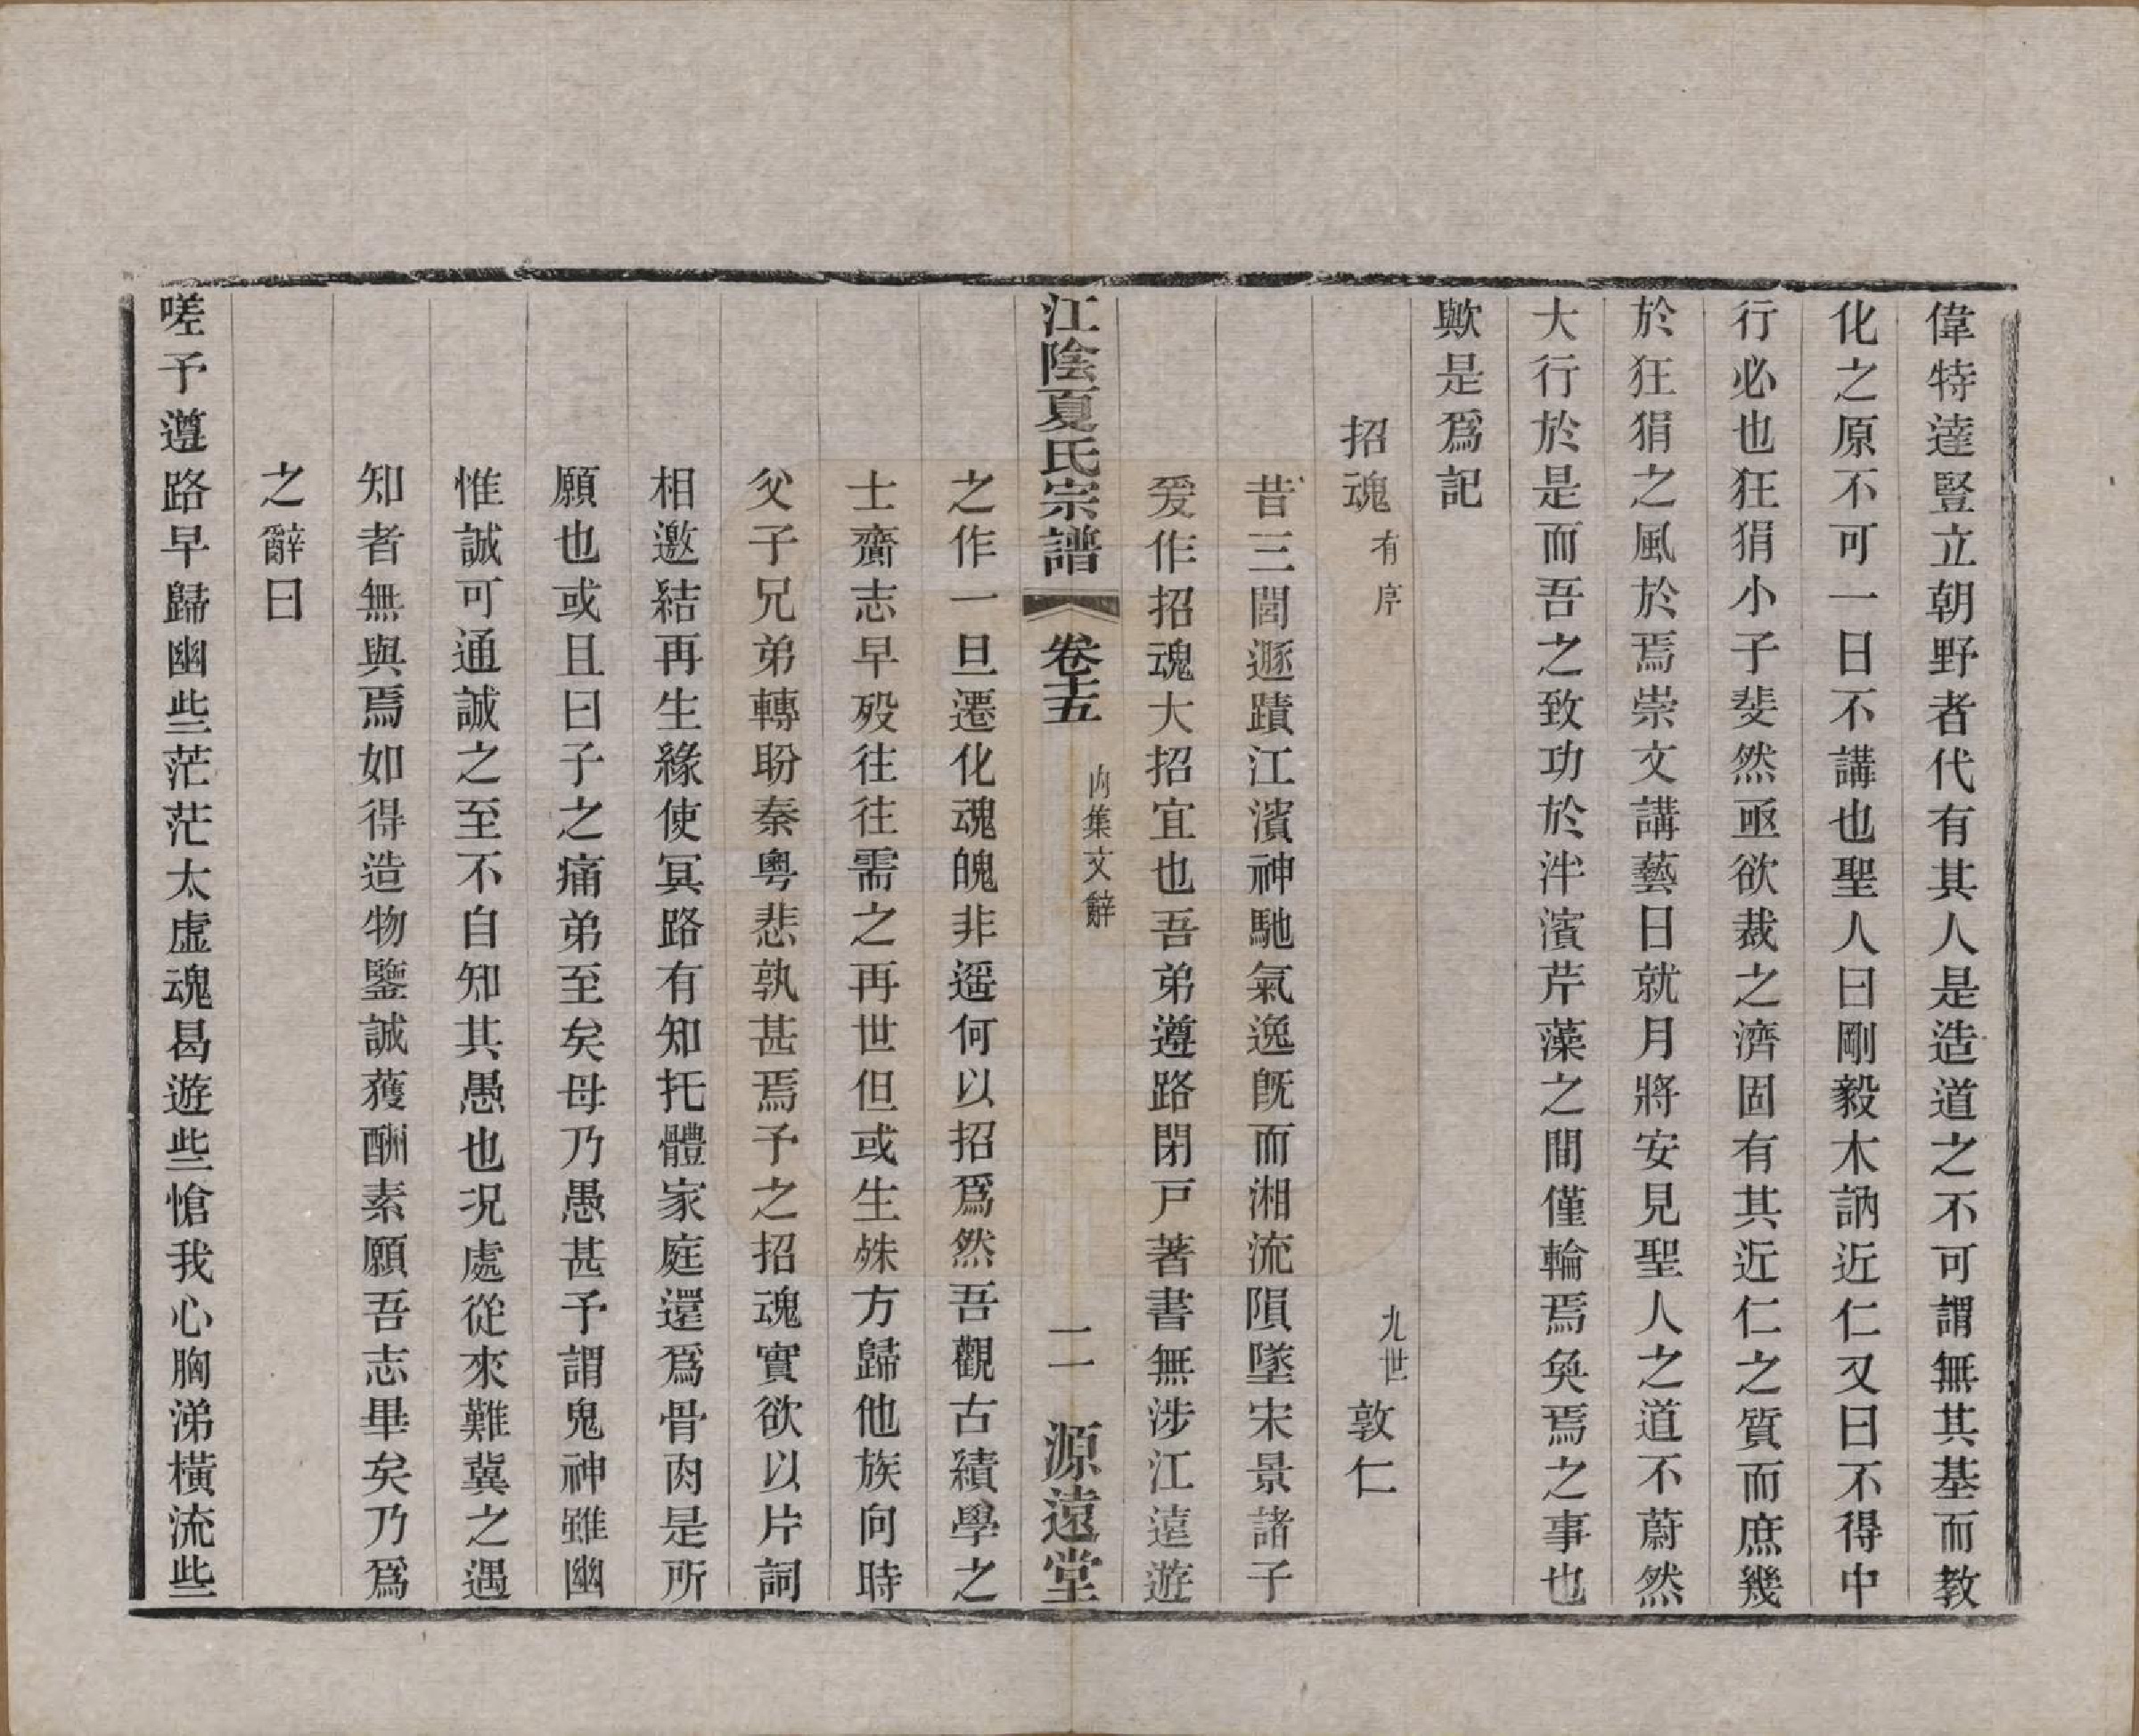 偉特達豎立朝野者代有其人是造道之不可謂無其基而教
化之原不可一日不講也聖人曰剛毅木訥近仁又曰不得中
行必也狂狷小子斐然亟欲裁之濟固有其近仁之質而庶幾
於狂狷之風於焉崇文講藝日就月將安見聖人之道不蔚然
大行於是而吾之致功於泮濱芹藻之間僅輪焉奐焉之事也
歟是爲記
招魂 有序 九世 敦仁
昔三閭遯蹟江濱神馳氣逸旣而湘流隕墜宋景諸子
爰作招魂大招宜也吾弟遵路閉戸著書無涉江遠遊
江陰夏氏宗譜 卷十五 内集文辭 二一 源遠堂
之作一旦遷化魂魄非遥何以招爲然吾觀古績學之
士齎志早殁往往需之再世但或生殊方歸他族向時
父子兄弟轉盼秦粤悲孰甚焉予之招魂實欲以片詞
相邀結再生緣使冥路有知托體家庭還爲骨肉是所
願也或且曰子之痛弟至矣毋乃愚甚予謂鬼神雖幽
惟誠可通誠之至不自知其愚也况處從來難冀之遇
知者無與焉如得造物鑒誠獲酬素願吾志畢矣乃爲
之辭曰
嗟予遵路早歸幽些茫茫太虛魂曷遊些愴我心胸涕橫流些